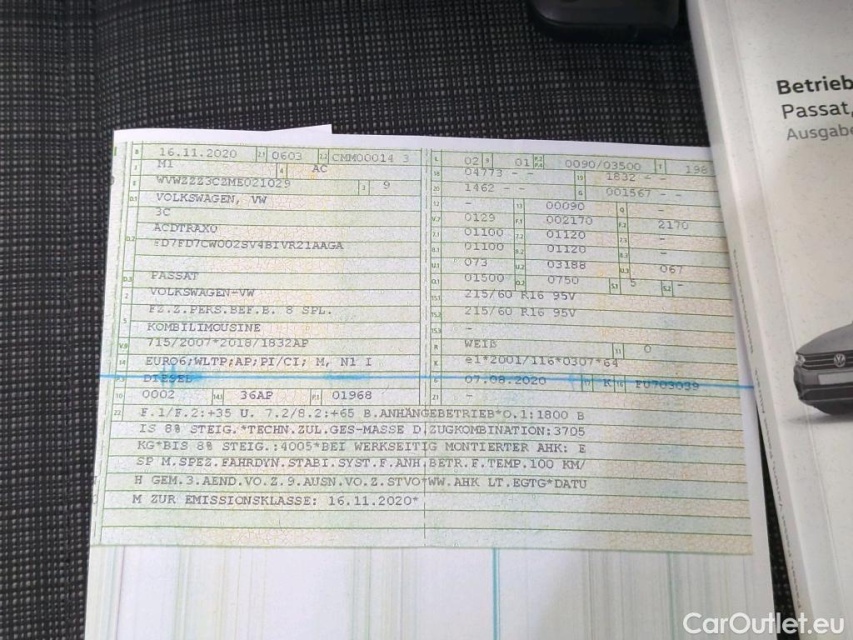 16.11.2020 0603 CMM00014 3
M1 AC
WVWZZZ3CZME021029 9
VOLKSWAGEN, VW
3C
ACDTRAX0
FD7FD7CW002SV4BIVR21AAGA
PASSAT
VOLKSWAGEN-VW
FZ.Z.PERS.BEF.B. 8 SPL.
KOMBILIMOUSINE
715/2007*2018/1832AP
EURO6;WLTP;AP;PI/CI; M, N1 I
DIESEL
0002 36AP 01968
02 01 0090/03500 198
04773 - - 1832 - -
1462 - - 001567 - -
- 00090 -
0129 002170 2170
01100 01120 -
01100 01120 -
073 03188 067
01500 0750 5 -
215/60 R16 95V
215/60 R16 95V
-
WEIß 0
e1*2001/116*0307*64
07.08.2020 K FU703039
-
22 F.1/F.2:+35 U. 7.2/8.2:+65 B.ANHÄNGEBETRIEB*O.1:1800 B
IS 8% STEIG.*TECHN.ZUL.GES-MASSE D.ZUGKOMBINATION:3705
KG*BIS 8% STEIG.:4005*BEI WERKSEITIG MONTIERTER AHK: E
SP M.SPEZ.FAHRDYN.STABI.SYST.F.ANH.BETR.F.TEMP.100 KM/
H GEM.3.AEND.VO.Z.9.AUSN.VO.Z.STVO*WW.AHK LT.EGTG*DATU
M ZUR EMISSIONSKLASSE: 16.11.2020*
Betrieb
Passat,
Ausgabe
CarOutlet.eu